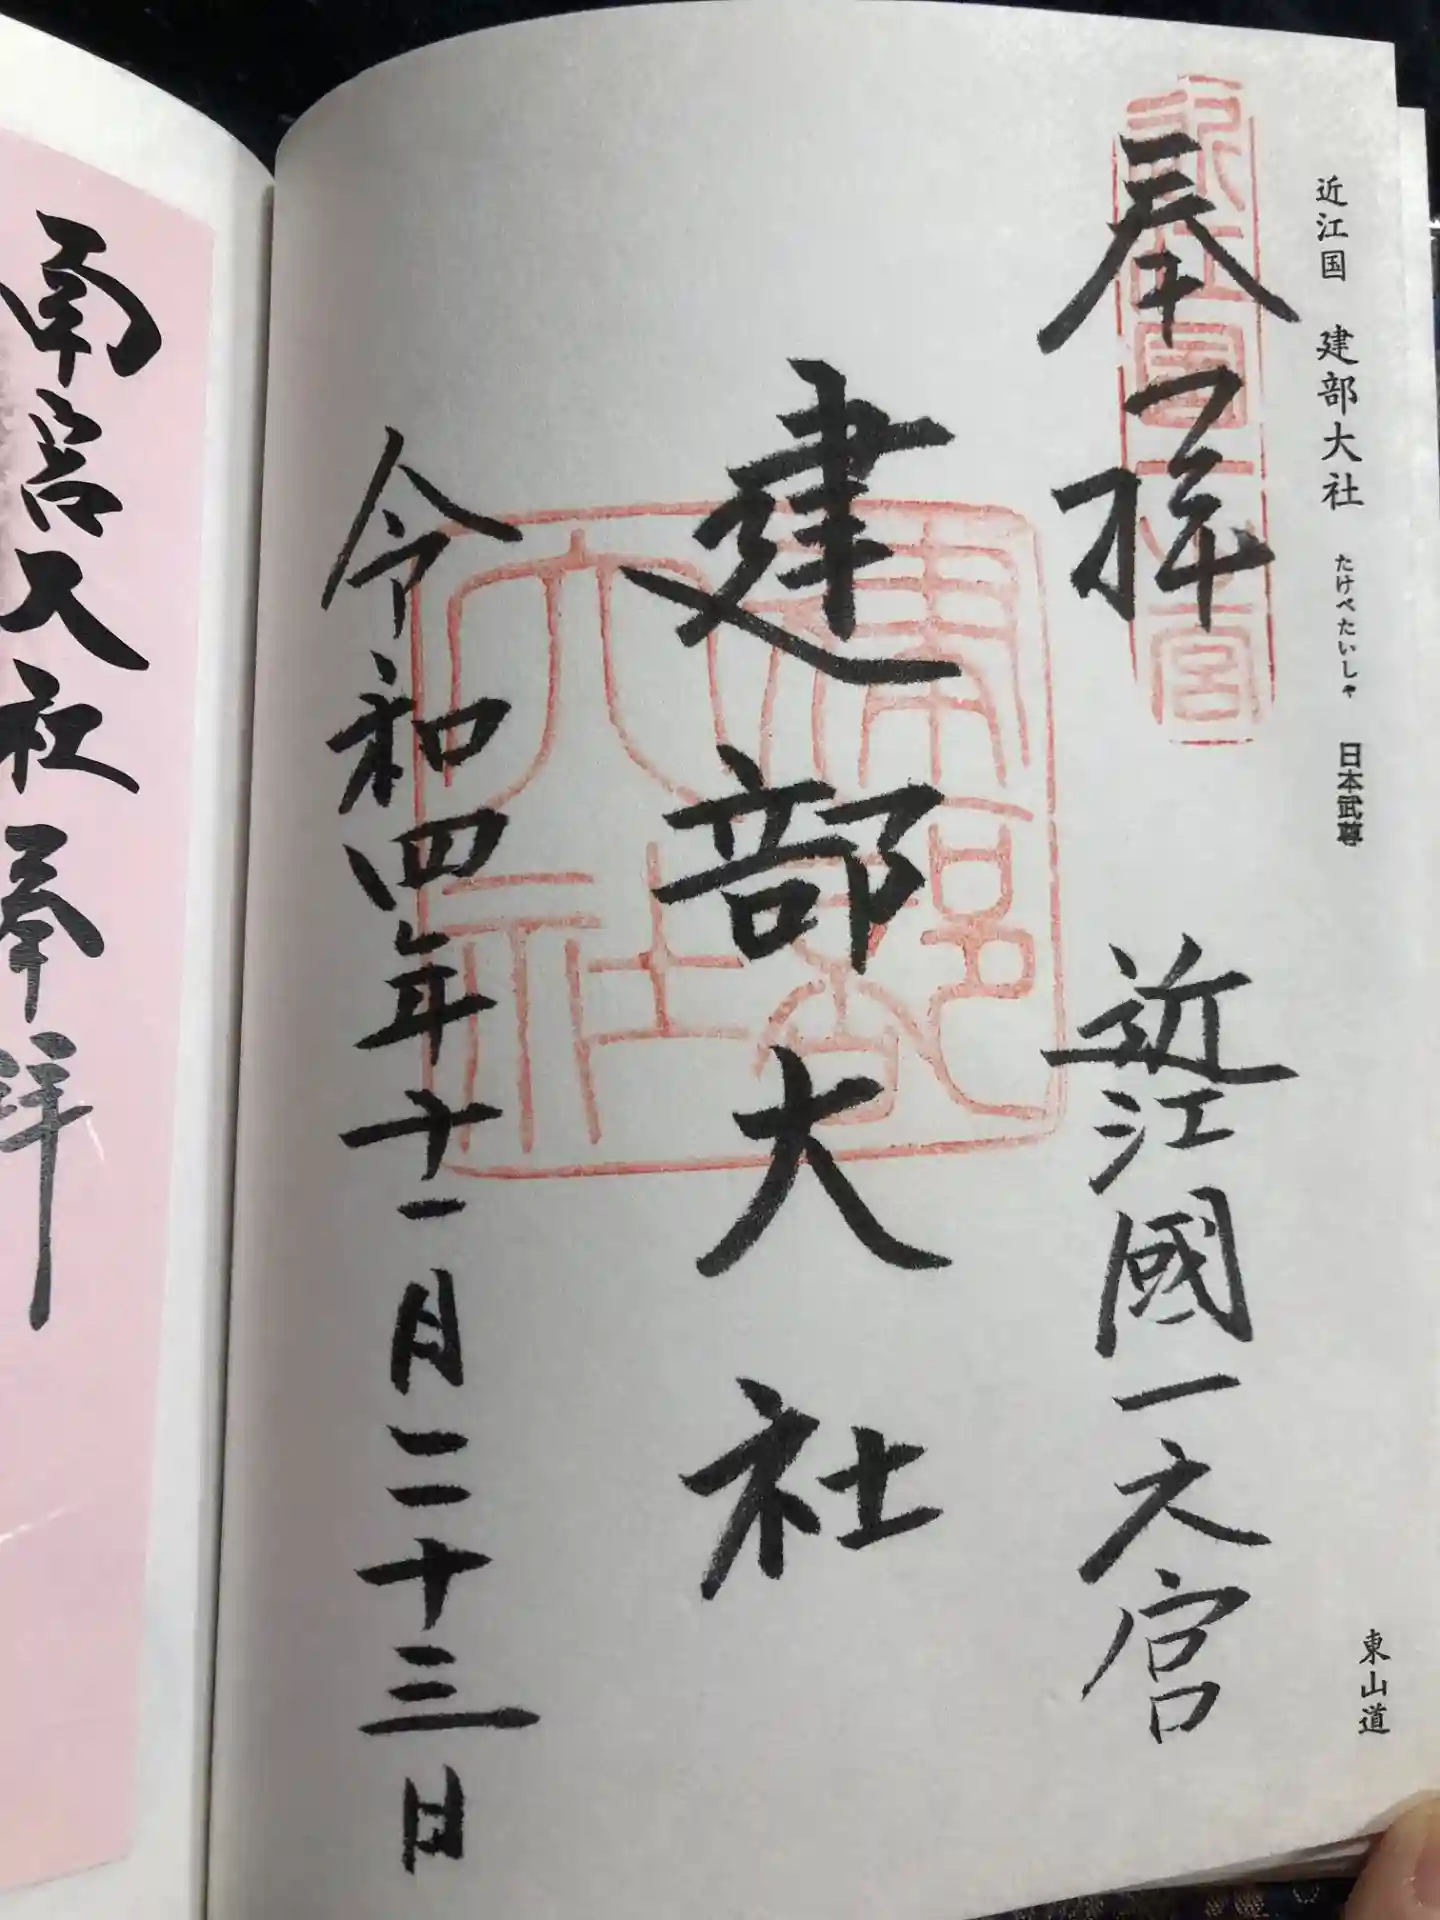 近江国 建部大社 たけべたいしゃ 日本武尊
東山道
奉拝 近江國一之宮
建部大社
令和四年十一月二十三日
近江国一之宮
建部大社
南宮大社 奉拝